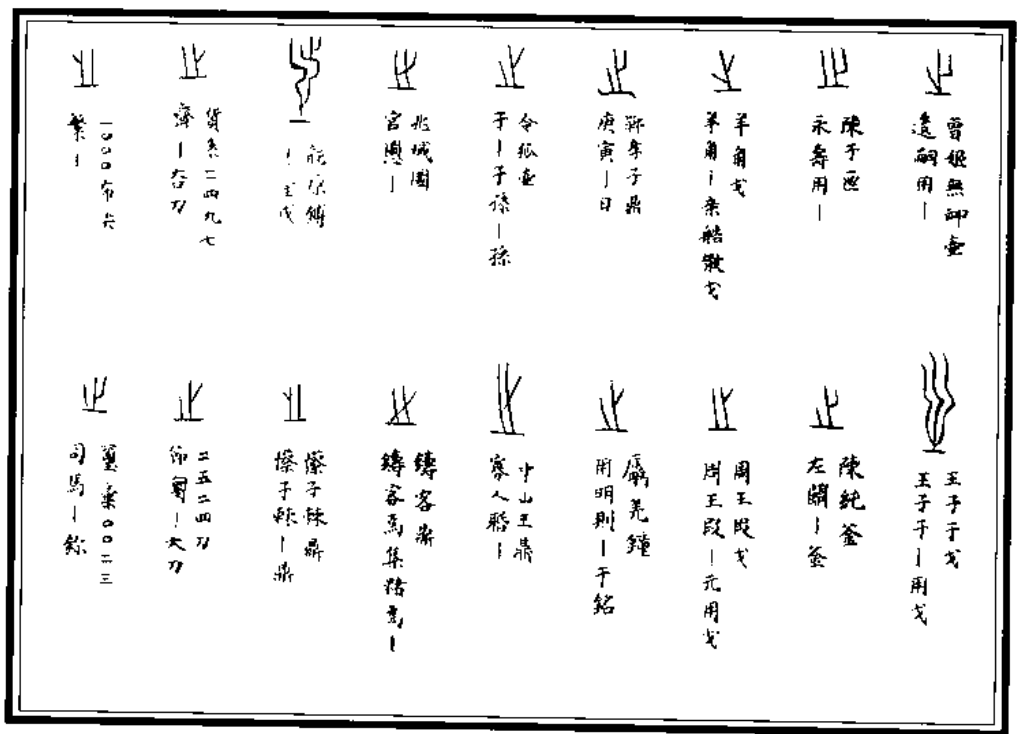 曾姬無卹壺
嗣用丨
陳子匜
永壽用丨
羊角戈
羊角丨亲艁散戈
孝子鼎
庚寅丨日
令狐壺
子丨子孫丨孫
兆域圖
宮丨
能原鎛
丨
貨系二四九七
齊丨大刀
一〇〇〇布尖
丨
王子于戈
王子于丨用戈
陳純釜
左關丨釜
周王叚戈
周王叚丨元用戈
羌鐘
用明則丨于銘
中山王鼎
寡人丨
鑄客鼎
鑄客為集為丨
子棘鼎
子棘丨鼎
二五二四刀
丨大刀
璽彙〇〇二三
司馬丨鉨